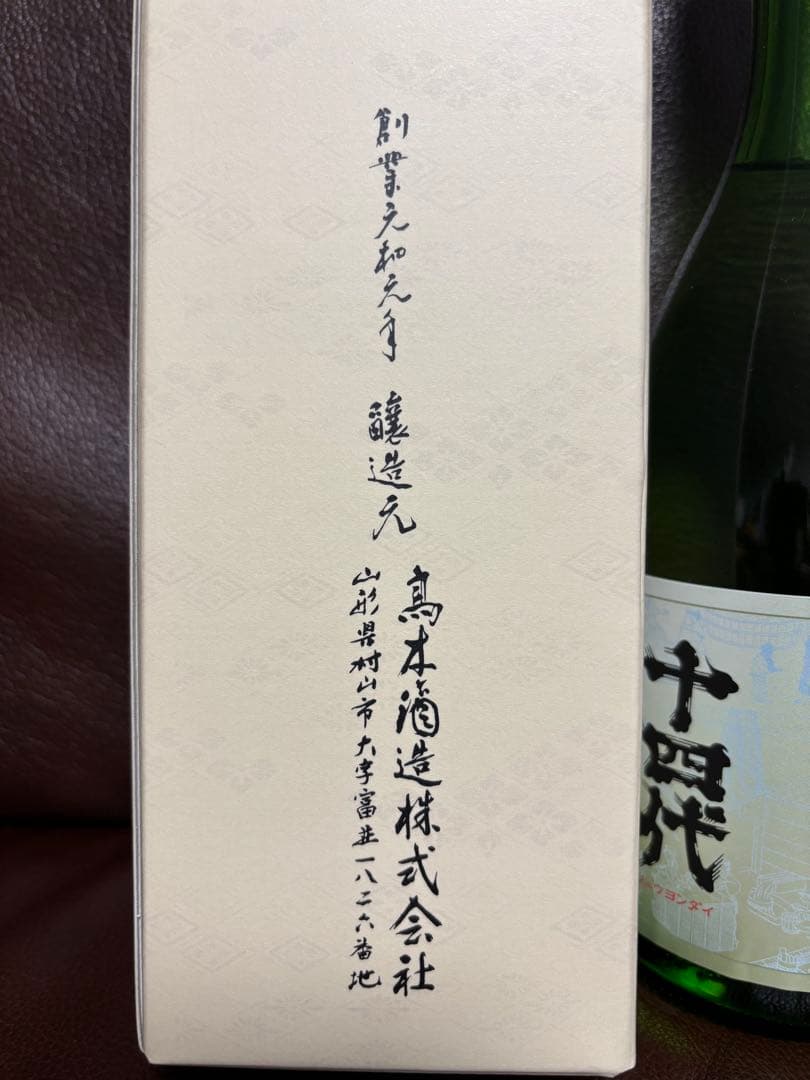 創業元和元年
醸造元
高木酒造株式会社
山形県村山市大字富並一八二六番地
十四代